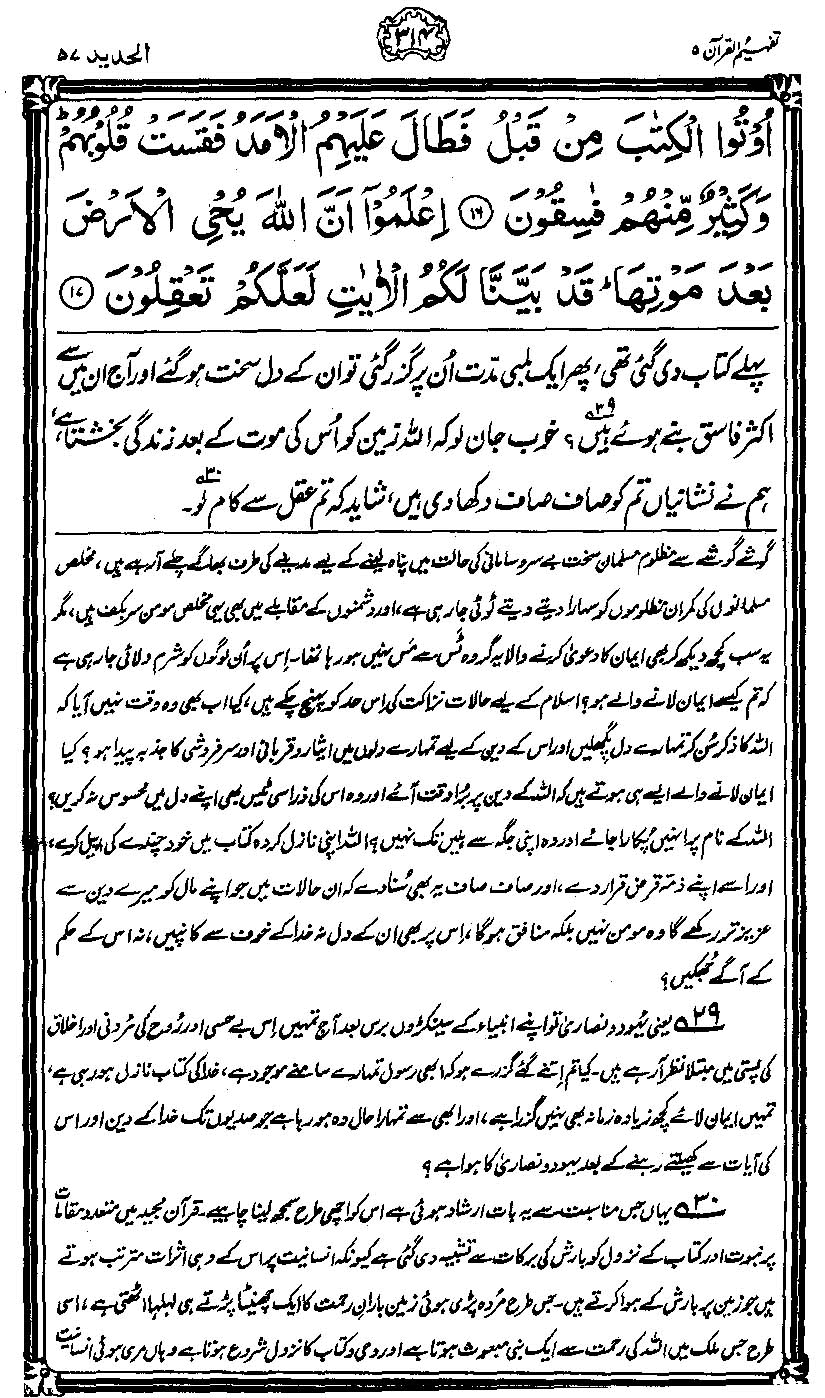 تفہیم القرآن ۵
۳۱۴
الحدید ۵۷
اُوْتُوا الْكِتٰبَ مِنْ قَبْلُ فَطَالَ عَلَيْهِمُ الْاَمَدُ فَقَسَتْ قُلُوْبُهُمْ ؕ
وَكَثِيْرٌ مِّنْهُمْ فٰسِقُوْنَ ۝۱۶ اِعْلَمُوْۤا اَنَّ اللّٰهَ يُحْيِ الْاَرْضَ
بَعْدَ مَوْتِهَا ؕ قَدْ بَيَّنَّا لَكُمُ الْاٰيٰتِ لَعَلَّكُمْ تَعْقِلُوْنَ ۝۱۷
پہلے کتاب دی گئی تھی، پھر ایک لمبی مدّت اُن پر گزر گئی تو ان کے دل سخت ہو گئے اور آج ان میں سے
اکثر فاسق بنے ہوئے ہیں۲۹؟ خوب جان لو کہ اللہ زمین کو اُس کی موت کے بعد زندگی بخشتا ہے،
ہم نے نشانیاں تم کو صاف صاف دکھا دی ہیں، شاید کہ تم عقل سے کام لو۳۰۔
گوشے گوشے سے مظلوم مسلمان سخت بے سروسامانی کی حالت میں پناہ لینے کے لیے مدینے کی طرف بھاگے چلے آ رہے ہیں، مخلص
مسلمانوں کی کمر ان مظلوموں کو سہارا دیتے دیتے ٹوٹی جا رہی ہے، اور دشمنوں کے مقابلے میں بھی یہی مخلص مومن سر بکف ہیں، مگر
یہ سب کچھ دیکھ کر بھی ایمان کا دعویٰ کرنے والا یہ گروہ ٹس سے مَس نہیں ہو رہا تھا۔ اِس پر اُن لوگوں کو شرم دلائی جا رہی ہے
کہ تم کیسے ایمان لانے والے ہو؟ اسلام کے لیے حالات نزاکت کی اِس حد کو پہنچ چکے ہیں، کیا اب بھی وہ وقت نہیں آیا کہ
اللہ کا ذکر سُن کر تمہارے دل پگھلیں اور اس کے دین کے لیے تمہارے دلوں میں ایثار و قربانی اور سرفروشی کا جذبہ پیدا ہو؟ کیا
ایمان لانے والے ایسے ہی ہوتے ہیں کہ اللہ کے دین پر بُرا وقت آئے اور وہ اس کی ذرا سی ٹیس بھی اپنے دل میں محسوس نہ کریں؟
اللہ کے نام پر انہیں پُکارا جائے اور وہ اپنی جگہ سے ہلیں تک نہیں؟ اللہ اپنی نازل کردہ کتاب میں خود چندے کی اپیل کرے،
اور اسے اپنے ذمّہ قرض قرار دے، اور صاف صاف یہ بھی سُنا دے کہ ان حالات میں جو اپنے مال کو میرے دین سے
عزیز تر رکھے گا وہ مومن نہیں بلکہ منافق ہوگا، اس پر بھی ان کے دل نہ خدا کے خوف سے کانپیں، نہ اس کے حکم
کے آگے جُھکیں؟
۲۹ یعنی یہود و نصاریٰ تو اپنے انبیاء کے سینکڑوں برس بعد آج تمہیں اِس بے حسی اور رُوح کی مُردنی اور اخلاق
کی پستی میں مبتلا نظر آ رہے ہیں۔ کیا تم اِتنے گئے گزرے ہو کہ ابھی رسول تمہارے سامنے موجود ہے، خدا کی کتاب نازل ہو رہی ہے،
تمہیں ایمان لائے کچھ زیادہ زمانہ بھی نہیں گزرا ہے، اور ابھی سے تمہارا حال وہ ہو رہا ہے جو صدیوں تک خدا کے دین اور اس
کی آیات سے کھیلتے رہنے کے بعد یہود و نصاریٰ کا ہوا ہے؟
۳۰ یہاں جس مناسبت سے یہ بات ارشاد ہوئی ہے اس کو اچھی طرح سمجھ لینا چاہیے۔ قرآن مجید میں متعدد مقامات
پر نبوت اور کتاب کے نزول کو بارش کی برکات سے تشبیہ دی گئی ہے کیونکہ انسانیت پر اس کے وہی اثرات مترتب ہوتے
ہیں جو زمین پر بارش کے ہوا کرتے ہیں۔ جس طرح مُردہ پڑی ہوئی زمین بارانِ رحمت کا ایک چھینٹا پڑتے ہی لہلہا اٹھتی ہے، اسی
طرح جس ملک میں اللہ کی رحمت سے ایک نبی مبعوث ہوتا ہے اور وحی و کتاب کا نزول شروع ہوتا ہے وہاں مری ہوئی انسانیت